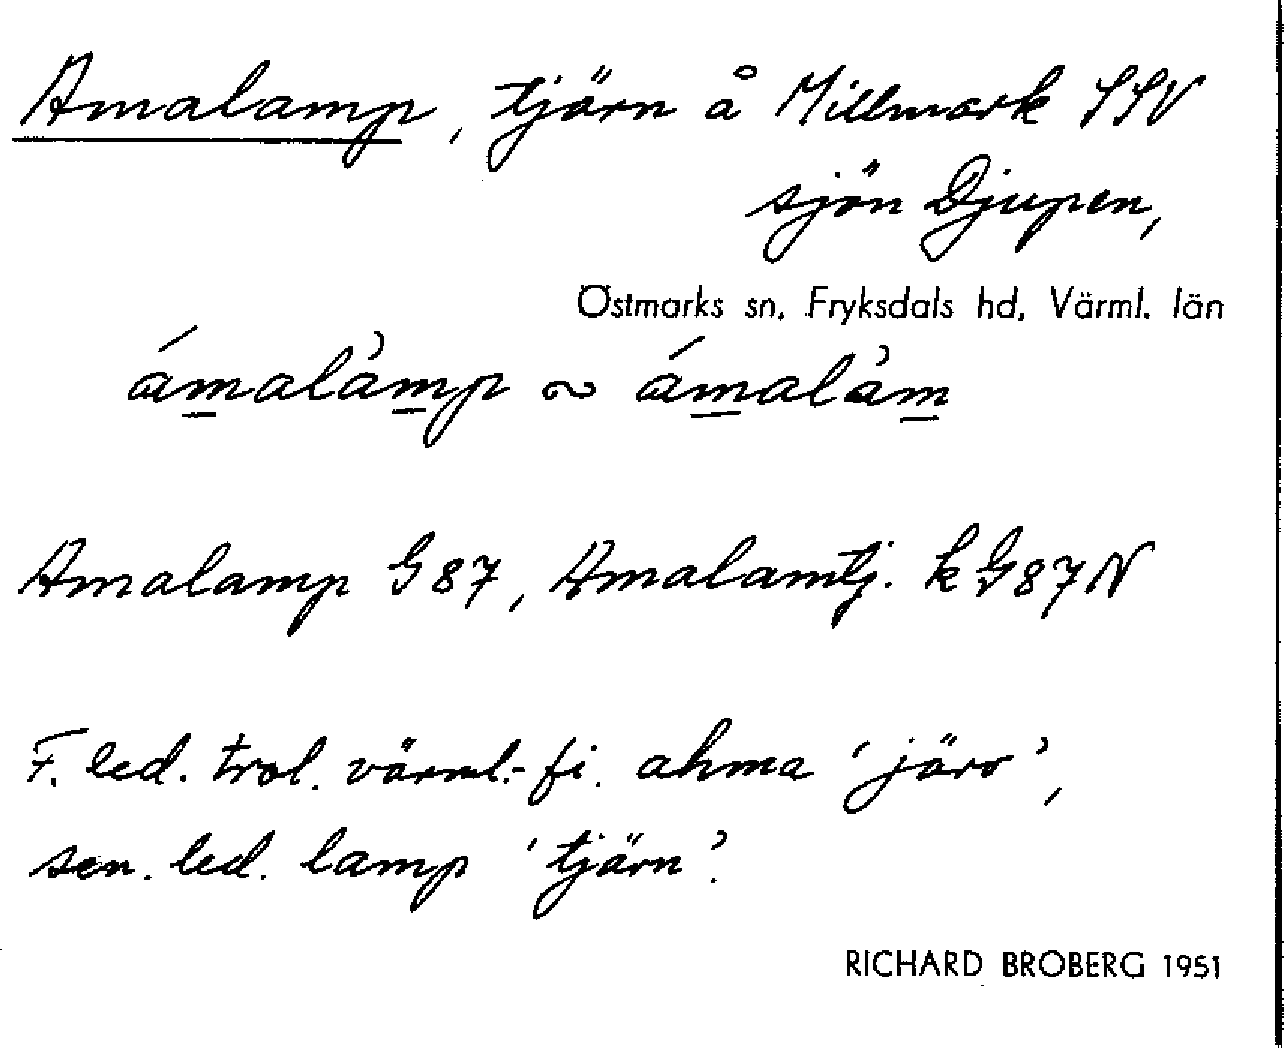 Amalamp, tjärn å Millmark SSV
sjön Djupen,
Östmarks sn, Fryksdals hd, Värml. län
ámalàmp ~ ámalàm
Amalamp G87, Amalamtj. k G87N
F. led. trol. värml.-fi. ahma 'järv',
sen. led. lamp 'tjärn'.
RICHARD BROBERG 1951